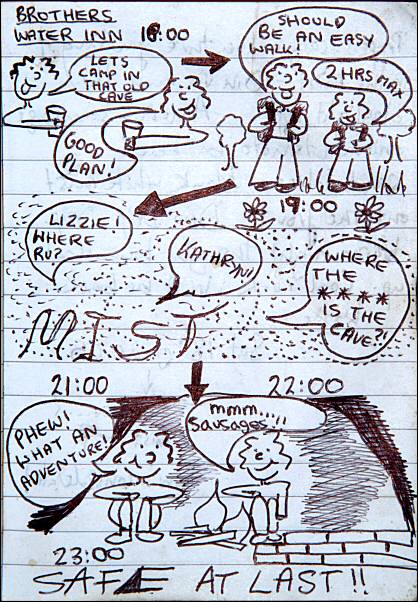 BROTHERS
WATER INN 18:00
LETS
CAMP IN
THAT OLD
CAVE
GOOD
PLAN!
SHOULD
BE AN EASY
WALK!
2 HRS MAX
19:00
LIZZIE!
WHERE
RU?
KATHRYN!!
WHERE
THE
****
IS THE
CAVE?!
MIST
21:00
22:00
PHEW!
WHAT AN
ADVENTURE!
mmm....!!
Sausages
23:00
SAFE AT LAST!!